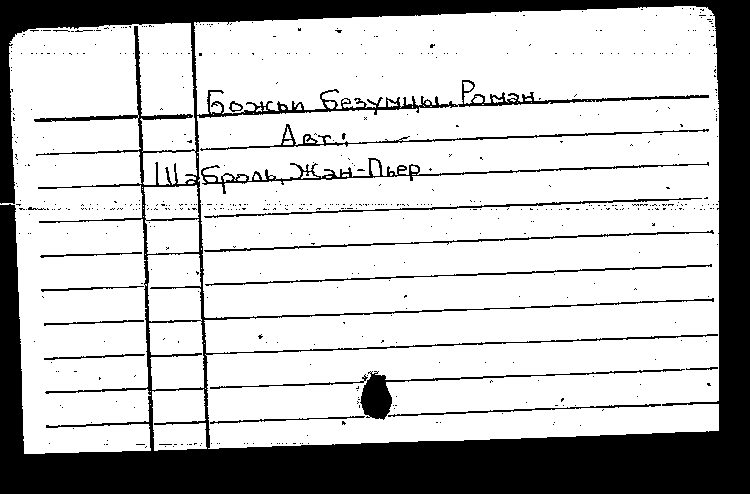 Божьи безумцы. Роман.
Авт.:
Шаброль, Жан-Пьер.